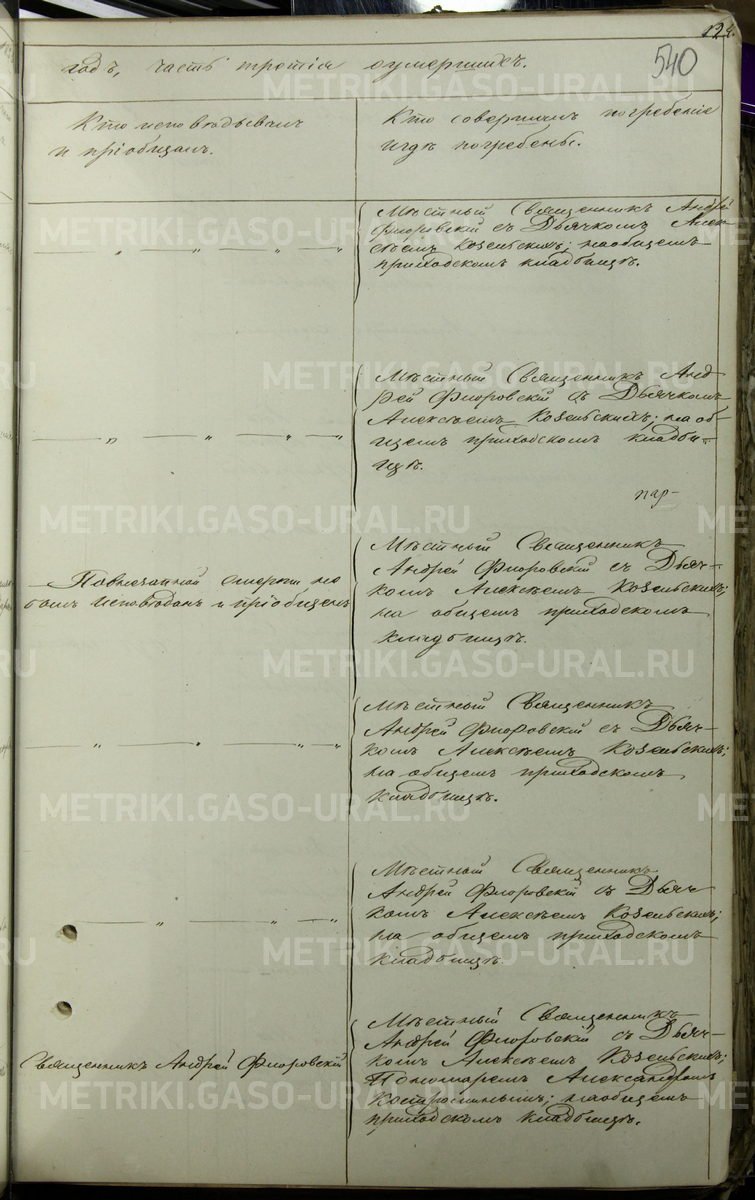 124.
540
годъ, часть третія оумершихъ.
Кто исповѣдывалъ
и пріобщалъ.
Кто совершалъ погребеніе
и гдѣ погребены.
Мѣстный Священникъ Андрей
Флоровскій съ Дьячкомъ Алек-
сѣемъ Козельскимъ; на общемъ
приходскомъ кладбищѣ.
Мѣстный Священникъ Анд
рей Флоровскій съ Дьячкомъ
Алексѣемъ Козельскимъ; на об-
щемъ приходскомъ кладби-
щѣ.
пар-
По внезапной смерти не
былъ исповѣданъ и пріобщенъ
Мѣстный Священникъ
Андрей Флоровскій съ Дьяч-
комъ Алексѣемъ Козельскимъ;
на общемъ приходскомъ
кладбищѣ.
Мѣстный Священникъ
Андрей Флоровскій съ Дьяч-
комъ Алексѣемъ Козельскимъ;
на общемъ приходскомъ
кладбищѣ.
Мѣстный Священникъ
Андрей Флоровскій съ Дьяч
комъ Алексѣемъ Козельскимъ;
на общемъ приходскомъ
кладбищѣ.
Священникъ Андрей Флоровскій
Мѣстный Священникъ
Андрей Флоровскій съ Дьяч-
комъ Алексѣемъ Козельскимъ;
Пономаремъ Александромъ
на общемъ
приходскомъ кладбищѣ.
METRIKI.GASO-URAL.RU